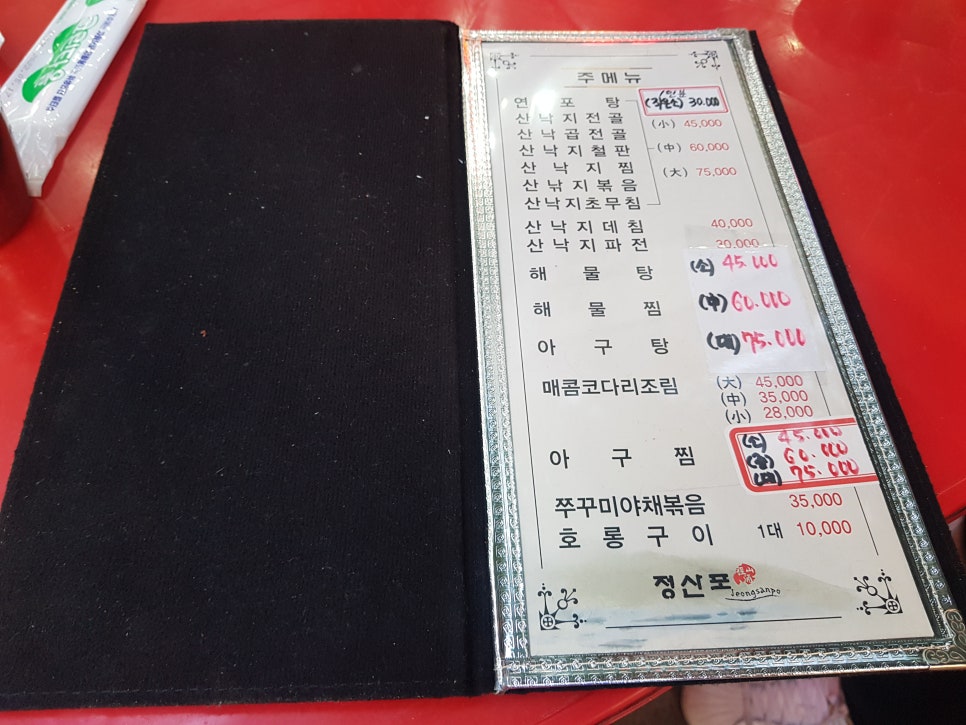 주메뉴
연 포 탕 30.000
산 낙 지 전 골 (小) 45,000
산 낙 곱 전 골
산 낙 지 철 판 (中) 60,000
산 낙 지 찜 (大) 75,000
산 낚 지 볶 음
산 낙 지 초 무 침
산 낙 지 데 침 40,000
산 낙 지 파 전 30,000
해 물 탕 (소) 45.000
해 물 찜 (中) 60.000
아 구 탕 (대) 75.000
매콤코다리조림 (大) 45,000
(中) 35,000
(小) 28,000
아 구 찜 (소) 45.000
(중) 60.000
(대) 75.000
쭈꾸미야채볶음 35,000
호 롱 구 이 1대 10,000
정산포
Jeongsanpo